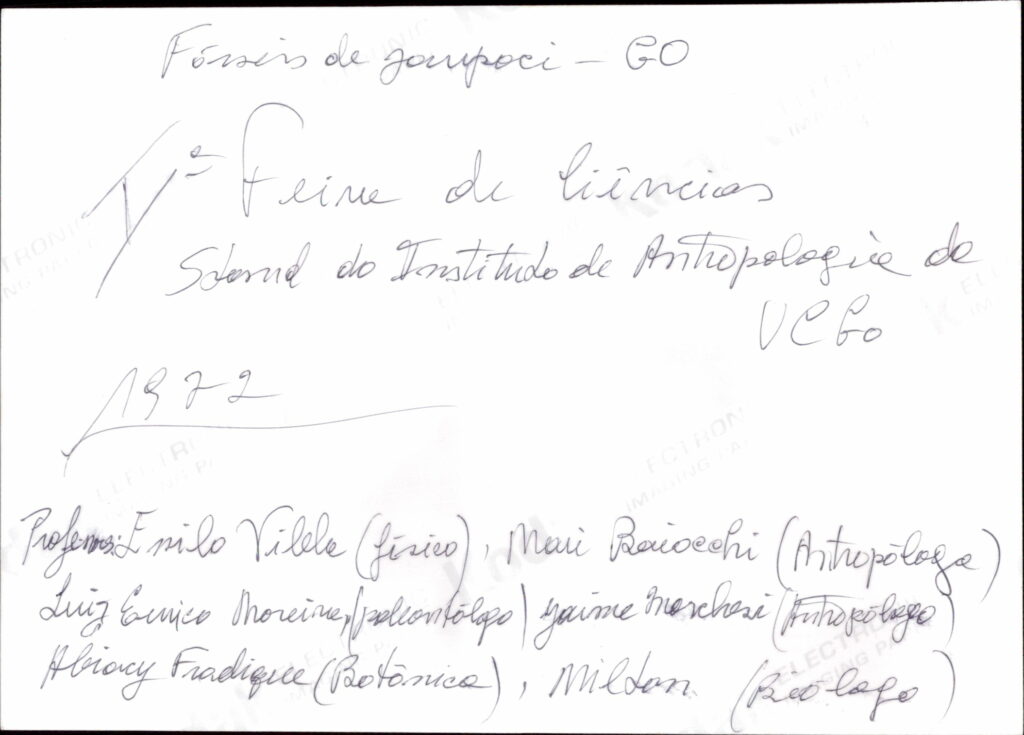 Fósseis de Jaupaci - GO
Vª Feira de Ciências
Stand do Instituto de Antropologia da
UCGo
1972
Professores: Emilo Vilela (físico), Mari Baiocchi (Antropóloga)
Luiz Eurico Moreira, (paleontólogo) Jaime Marchesi (Antropólogo)
Abiacy Fradique (Botânica), Milton (Biólogo)